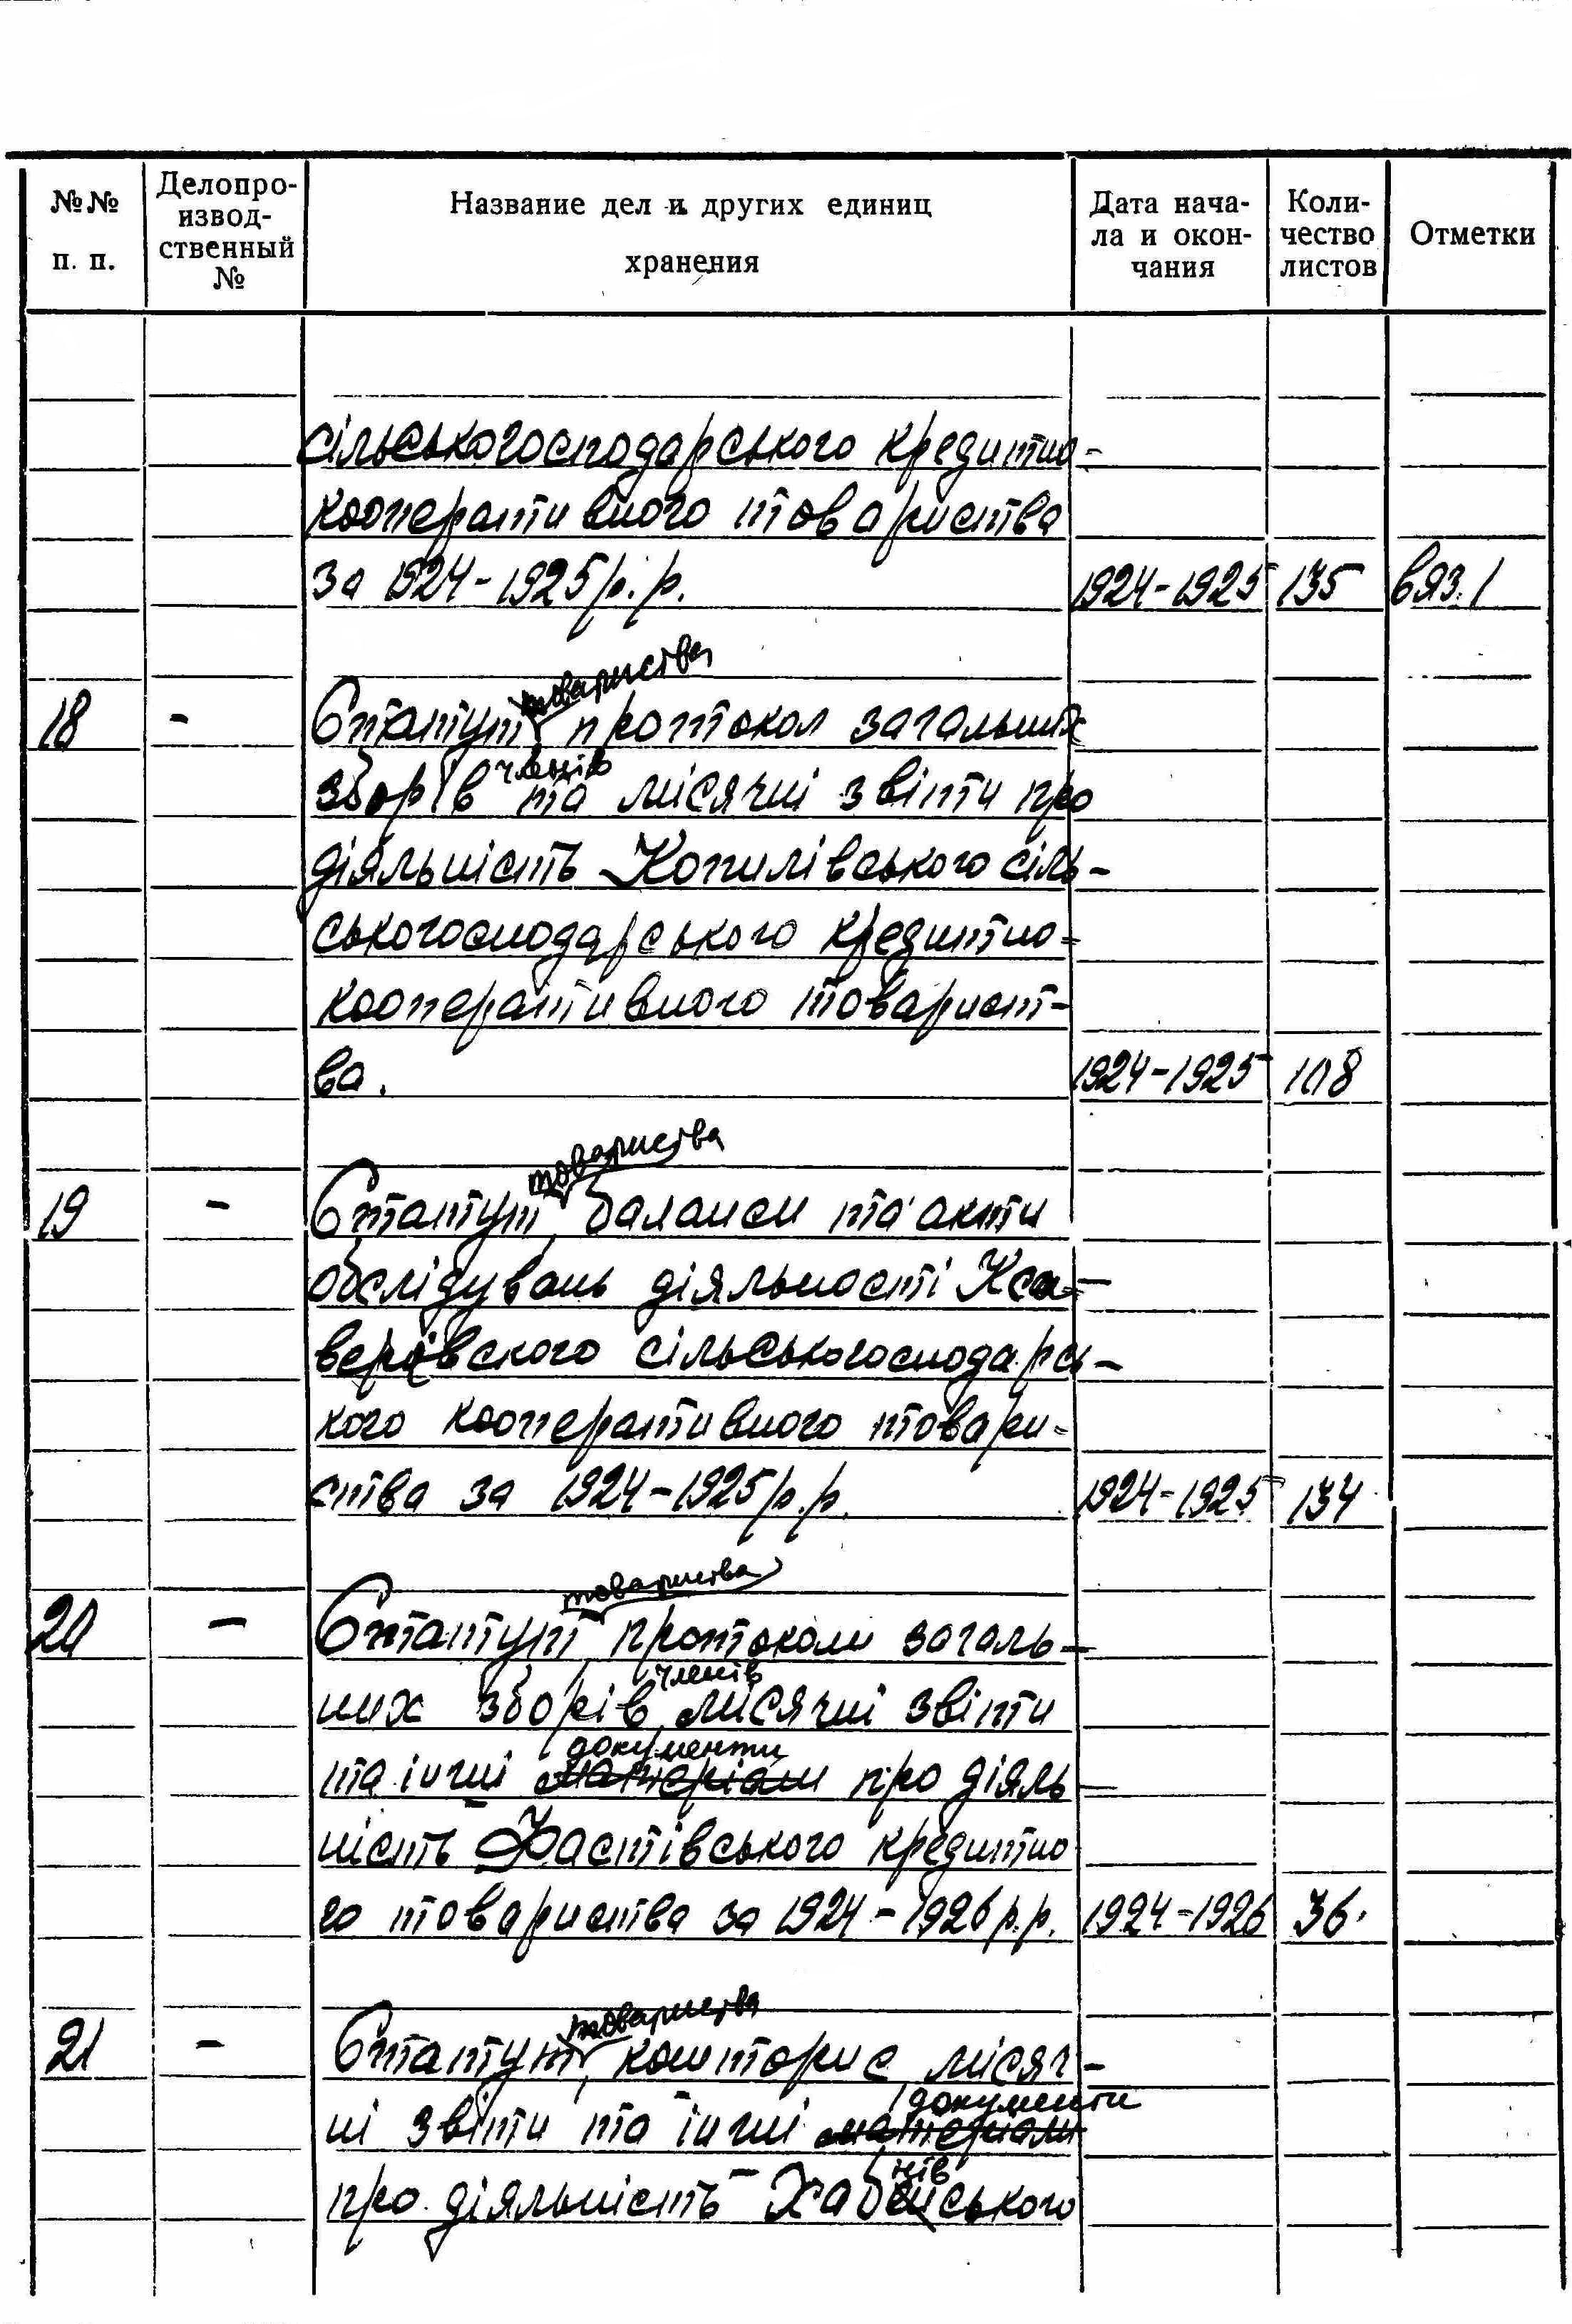 №№ п. п.
Делопро-
извод-
ственный
№
Название дел и других единиц
хранения
Дата нача-
ла и окон-
чания
Коли-
чество
листов
Отметки
сільськогосподарського кредитно-
кооперативного товариства
за 1924-1925 р.р. 1924-1925 135 вяз.1
товариства
18 - Статут, протокол загальних
членів
зборів та місячні звіти про
діяльність Копилівського сіль-
ськогосподарського кредитно-
кооперативного товарист-
ва. 1924-1925 108
товариства
19 - Статут, баланси та акти
обслідувань діяльності Кса-
верівского сільськогосподарсь-
кого кооперативного товари-
ства за 1924-1925 р.р. 1924-1925 134
товариства
20 - Статут, протоколи загаль-
членів
них зборів, місячні звіти
документи
та інші матеріали про діяль-
ність Фастівського кредитно
го товариства за 1924-1926 р.р. 1924-1926 36.
товариства
21 - Статут, кошторис, місяч-
документи
ні звіти та інші матеріали
нів
про діяльність Хабенського